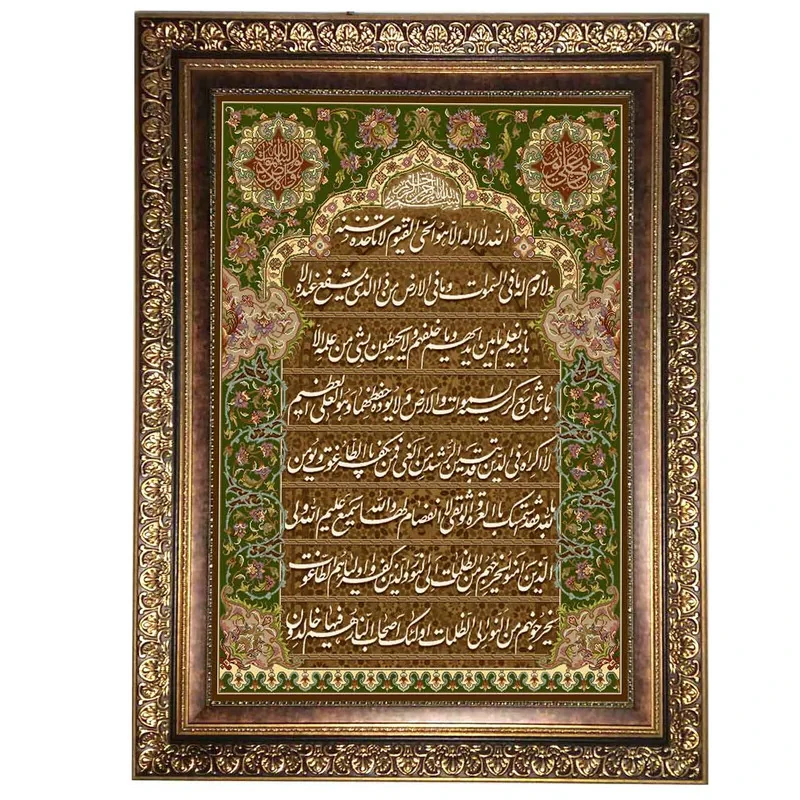 بسم الله الرحمن الرحیم
الله لا اله الا هو الحی القیوم لا تاخذه سنة
ولا نوم له ما فی السموات و ما فی الارض من ذا الذی یشفع عنده الا
باذنه یعلم ما بین ایدیهم و ما خلفهم ولا یحیطون بشی من علمه الا
بما شاء وسع کرسیه السموات والارض ولا یوده حفظهما و هو العلی العظیم
لا اکراه فی الدین قد تبین الرشد من الغی فمن یکفر بالطاغوت و یومن
بالله فقد استمسک بالعروة الوثقی لا انفصام لها والله سمیع علیم الله ولی
الذین امنوا یخرجهم من الظلمات الی النور والذین کفروا اولیاهم الطاغوت
یخرجونهم من النور الی الظلمات اولئک اصحاب النار هم فیها خالدون